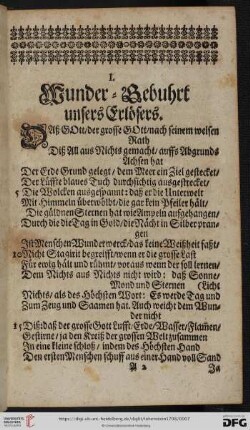 I.
Wunder-Gebuhrt
unsers Erlösers.
DAß GOtt/der grosse GOtt/nach seinem weisen
Rath
Diß All aus Nichts gemacht/auffs Abgrunds
Achsen hat
Der Erde Grund gelegt/dem Meer ein Ziel gestecket/
Der Lüffte blaues Tuch durchsichtig ausgestrecket/
Die Wolcken ausgespannt: daß er die Unterwelt
Mit Himmeln überwölbt/die gar kein Pfeiler hält/
Die güldnem Sternen hat wie Ampeln aufgehangen/
Durch die die Tag in Gold/die Nächt in Silber pran-
gen
Ist Menschen Wunderwerck/das keine Weißheit faßt/
10 Nicht Stagirit begreifft/wenn er die grosse Last
Für ewig hält und rühmt/vor aus wenn der soll lernen/
Dem Nichts aus Nichts nicht wird: daß Sonne/
Mond und Sternen (Licht
Nichts/als des Höchsten Wort: Es werde Tag und
Zum Zeug und Saamen hat. Auch weicht dem Wun-
der nicht
15 Diß: daß der grosse Gott Lufft/Erde/Wasser/Flamen/
Gestirne/ja den Kreiß der grossen Welt zusammen
In eine kleine schloß/indem des Höchsten Hand
Den ersten Menschen schuff aus einer Hand voll Sand
A 2 Ja
DFG